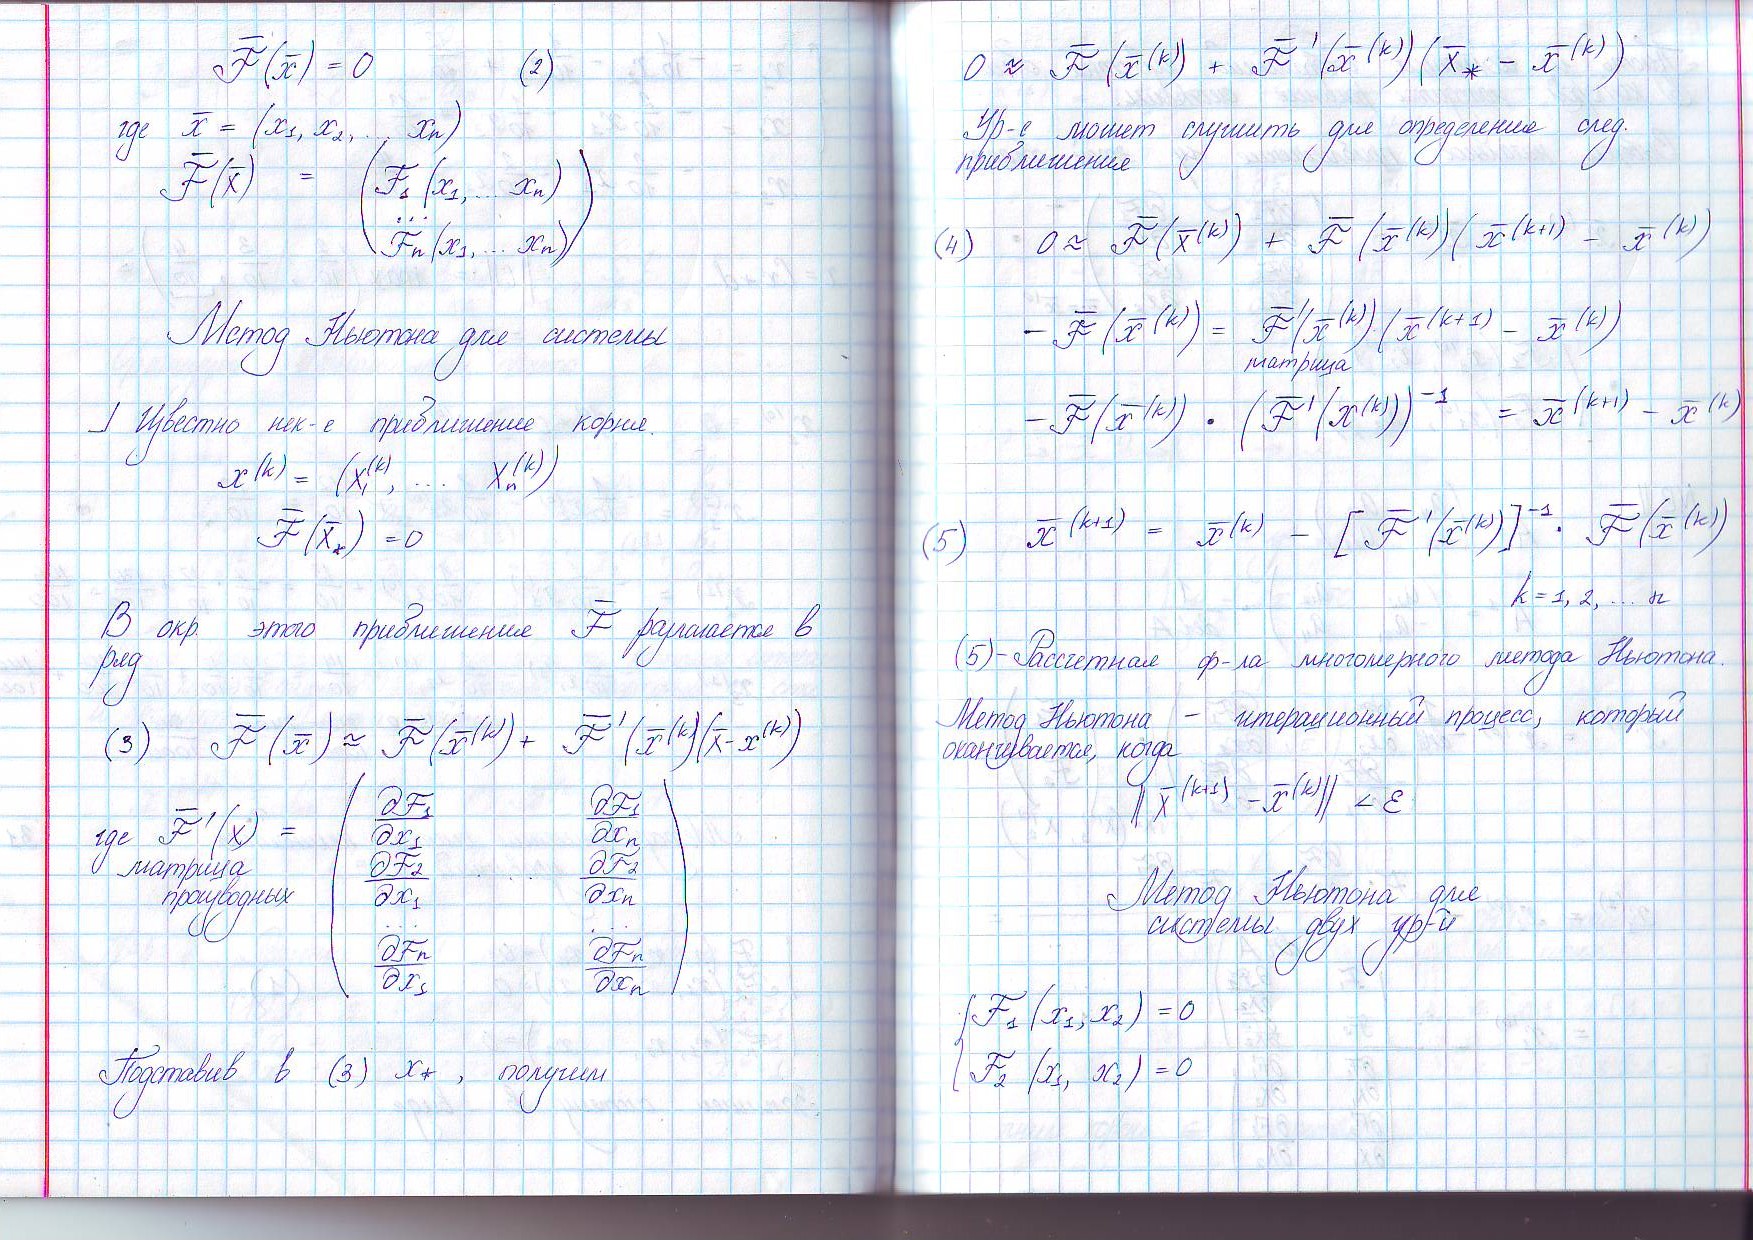 F̄(x̄) = 0 (2)
где x̄ = (x₁, x₂, ... xₙ)
F̄(x̄) = (F₁(x₁, ... xₙ)
...
Fₙ(x₁, ... xₙ))
Метод Ньютона для системы
⅃ Известно нек-е приближение корня.
x⁽ᵏ⁾ = (x₁⁽ᵏ⁾, ... xₙ⁽ᵏ⁾)
F̄(x̄_*) = 0
В окр. этого приближения F̄ разлагается в
ряд
(3) F̄(x̄) ≈ F̄(x̄⁽ᵏ⁾) + F̄'(x̄⁽ᵏ⁾)(x̄ - x⁽ᵏ⁾)
где F̄'(x) =
матрица
производных
∂F₁/∂x₁ ∂F₁/∂xₙ
∂F₂/∂x₁ ... ∂F₂/∂xₙ
... ...
∂Fₙ/∂x₁ ∂Fₙ/∂xₙ
Подставив в (3) x_*, получим
0 ≈ F̄(x̄⁽ᵏ⁾) + F̄'(x̄⁽ᵏ⁾)(x̄_* - x̄⁽ᵏ⁾)
Ур-е может служить для определения след.
приближения
(4) 0 ≈ F̄(x̄⁽ᵏ⁾) + F̄(x̄⁽ᵏ⁾)(x̄⁽ᵏ⁺¹⁾ - x̄⁽ᵏ⁾)
- F̄(x̄⁽ᵏ⁾) = F̄'(x̄⁽ᵏ⁾)(x̄⁽ᵏ⁺¹⁾ - x̄⁽ᵏ⁾)
матрица
- F̄(x̄⁽ᵏ⁾) · (F̄'(x⁽ᵏ⁾))⁻¹ = x̄⁽ᵏ⁺¹⁾ - x̄⁽ᵏ⁾
(5) x̄⁽ᵏ⁺¹⁾ = x̄⁽ᵏ⁾ - [F̄'(x̄⁽ᵏ⁾)]⁻¹ · F̄(x̄⁽ᵏ⁾)
k = 1, 2, ... n
(5) - Рассчетная ф-ла многомерного метода Ньютона.
Метод Ньютона - итерационный процесс, который
оканчивается, когда
||x̄⁽ᵏ⁺¹⁾ - x̄⁽ᵏ⁾|| < ε
Метод Ньютона для
системы двух ур-й
{F₁(x₁, x₂) = 0
F₂(x₁, x₂) = 0